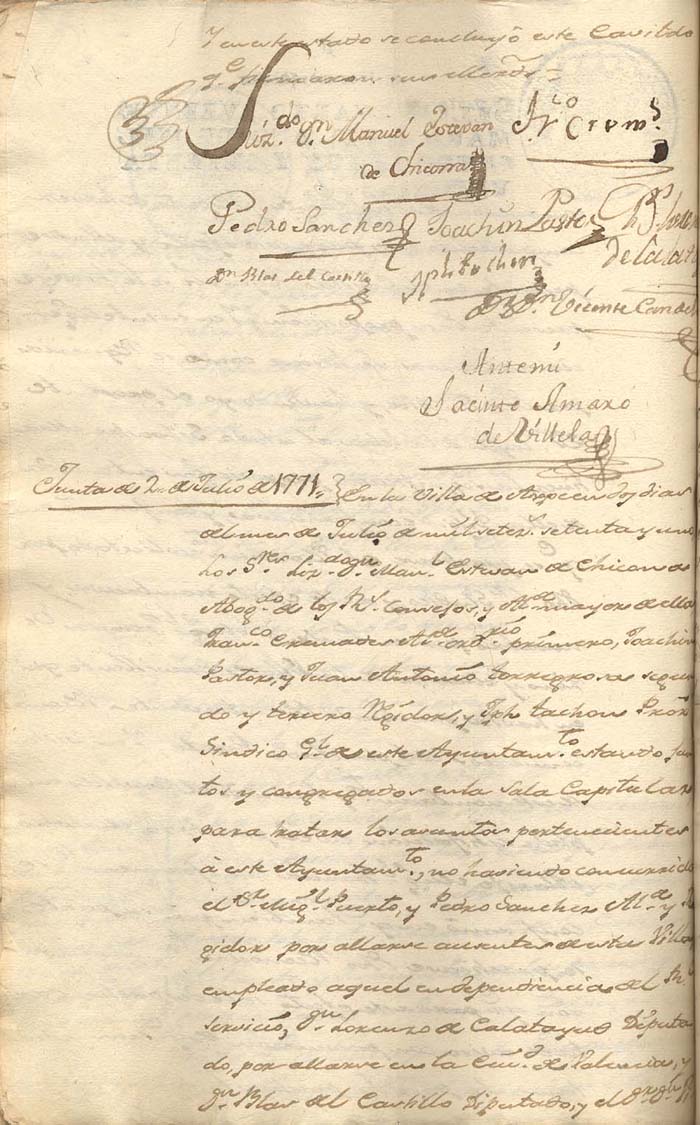 Y en este estado se concluyó este Cavildo
q.e firmaron sus Mercds =
Liz.do Dn Manuel Estevan
de Chicorra
Fr.co Crem.s
Pedro Sanchez Joachin Pastor
de Calata
Dn Blas del Castillo Jph tachon
Dr Dn Vicente Cande
Antemi
Jacinto Amaro
de Villela
Junta de 2 de Julio de 1771. En la Villa de Aspe en dos dias
del mes de Julio de mil setes. setenta y uno
Los S.res Liz.do Dn Man.l Estevan de Chicorra
Abog.do de los Rs. Consejos, y Al.e mayor de ella
Fran.co Cremades Al.e ord.rio primero, Joachin
Pastor, y Juan Antonio torregrosa segun
do y tercero Rexidors, y Jph tachon Pror
Sindico Gl de este Ayuntam.to estando jun
tos y congregados en la Sala Capitular
para tratar los asuntos pertenecientes
à este Ayuntam.to, no haviendo concurrido
el Sr Mig.l Puerto, y Pedro Sanchez Al.e y Re
gidor por allarse ausentes de esta Villa
empleado aquel en dependiencia del Rl
servicio, Dn Lorenzo de Calatayud Diputa
do, por allarse en la Ciu.d de Valencia, y
Dn Blas del Castillo Diputado, y el Dr Dn